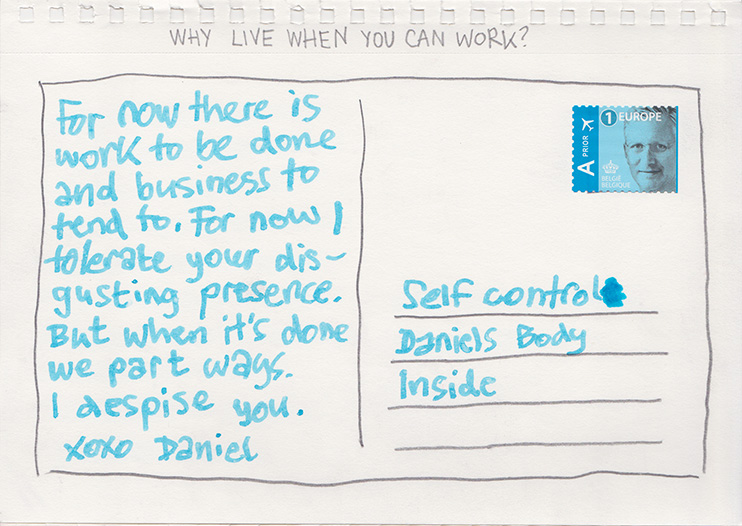 WHY LIVE WHEN YOU CAN WORK?
For now there is
work to be done
and business to
tend to. For now I
tolerate your dis-
gusting presence.
But when it's done
we part ways.
I despise you.
xoxo Daniel
1 EUROPE
A PRIOR
BELGIË
BELGIQUE
Self control
Daniels Body
Inside